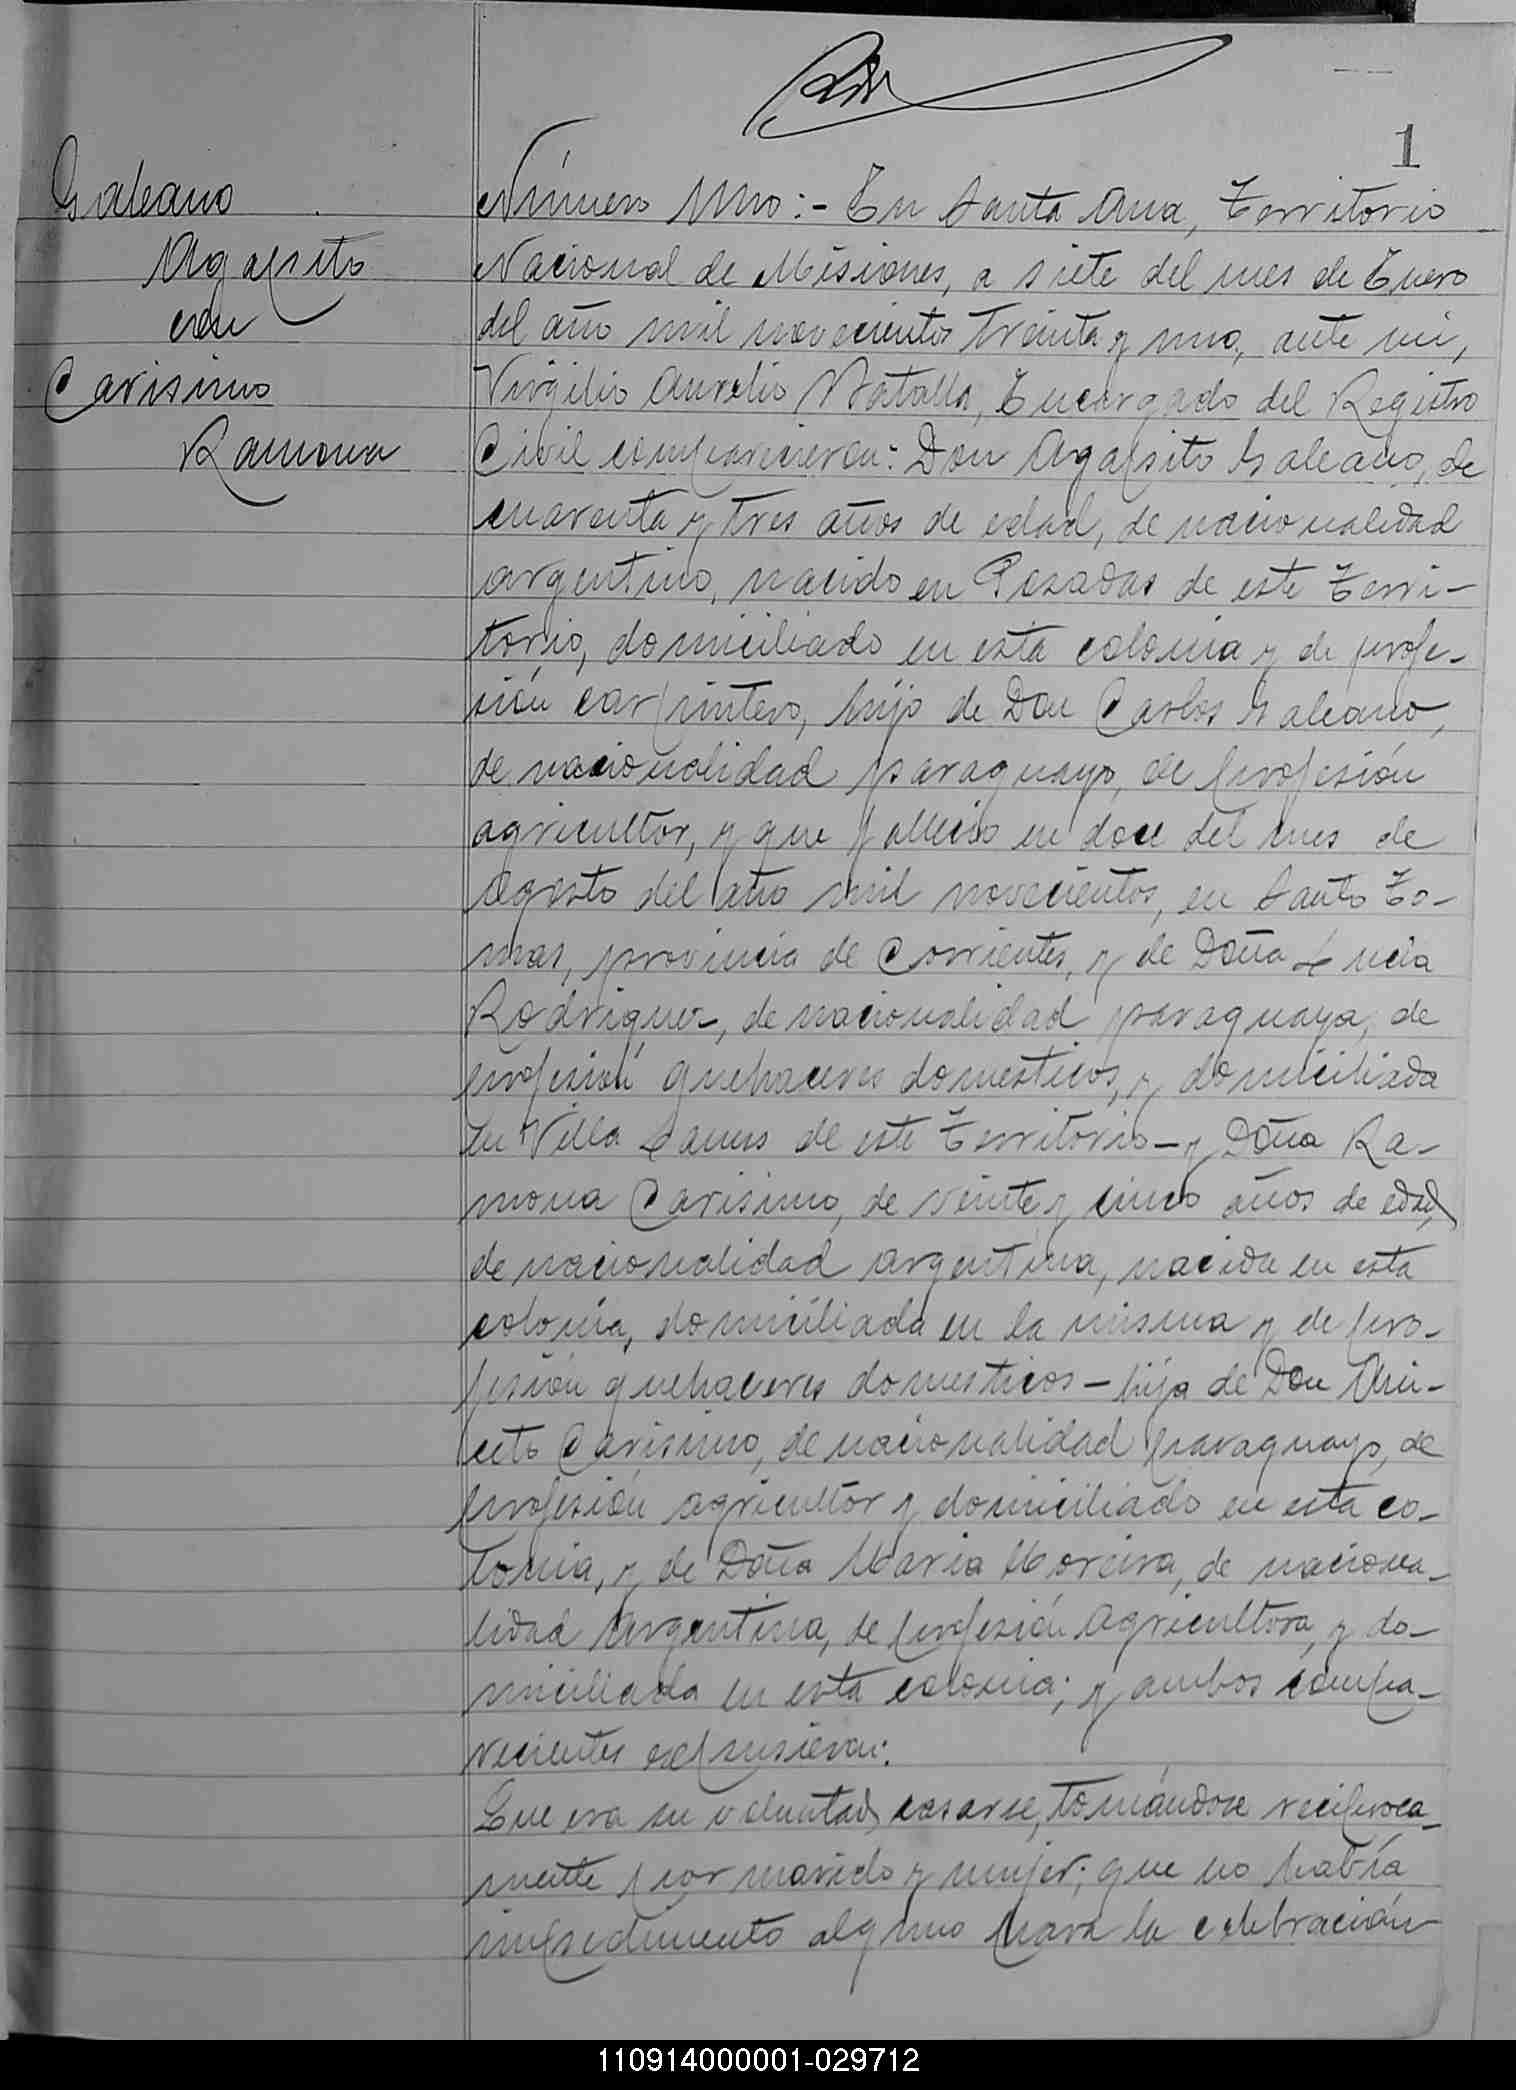 1
Galeano
Agapito
con
Carisimo
Ramona
Número Uno:- En Santa Ana, Territorio
Nacional de Misiones, a siete del mes de Enero
del año mil novecientos treinta y uno, ante mi,
Virgilio Aurelio Batalla, Encargado del Registro
Civil comparecieron: Don Agapito Galeano, de
cuarenta y tres años de edad, de nacionalidad
argentino, nacido en Posadas de este Terri-
torio, domiciliado en esta colonia y de profe-
sión carpintero, hijo de Don Carlos Galeano,
de nacionalidad paraguayo, de profesión
agricultor, y que falleció en doce del mes de
Agosto del año mil novecientos, en Santo To-
mas, provincia de Corrientes, y de Doña Lucia
Rodriguez, de nacionalidad paraguaya, de
profesión quehaceres domesticos, y domiciliada
en Villa Lanus de este Territorio - y Doña Ra-
mona Carisimo, de veinte y cinco años de edad,
de nacionalidad argentina, nacida en esta
colonia, domiciliada en la misma y de pro-
fesión quehaceres domesticos - hija de Don
Carisimo, de nacionalidad paraguayo, de
profesión agricultor y domiciliado en esta co-
lonia, y de Doña Maria Moreira, de naciona-
lidad Argentina, de profesión Agricultora, y do-
miciliada en esta colonia; y ambos compa-
recientes expusieron:
Que era su voluntad casarse, tomándose reciproca-
mente por marido y mujer; que no había
impedimento alguno para la celebración
110914000001-029712